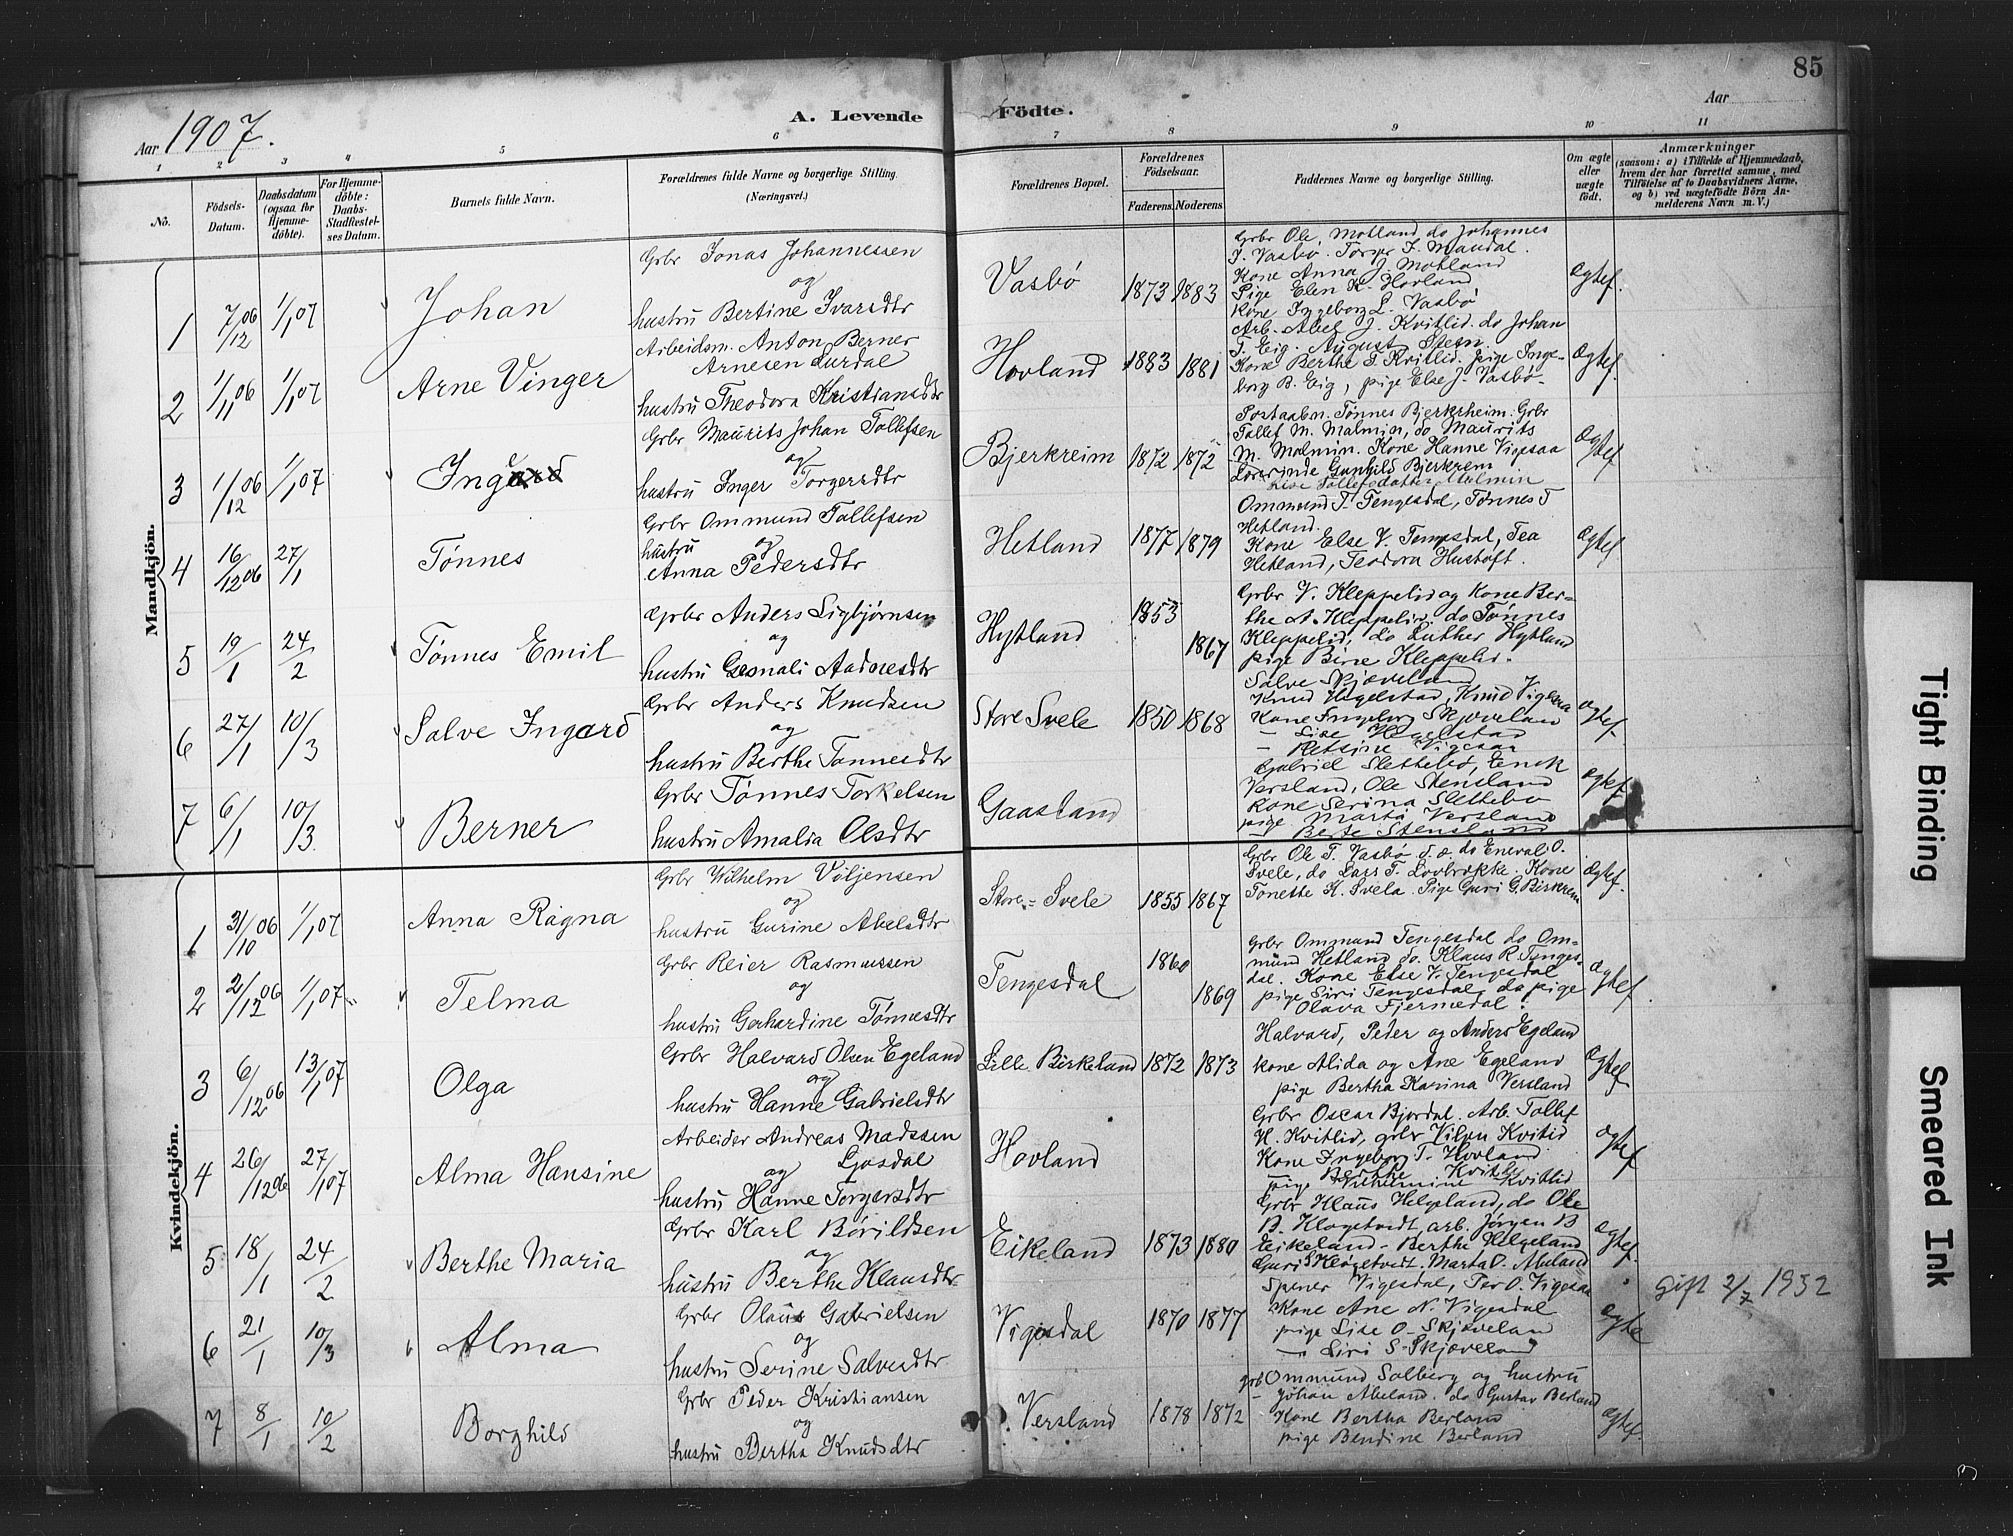 85
Aar 1907. A. Levende Födte. Aar
1 2 3 4 5 6 7 8 9 10 11
No.
Födsels-Datum.
Daabsdatum (ogsaa for Hjemme-döbte).
For Hjemme-döbte: Daabs-Stadfæstel-ses Datum.
Barnets fulde Navn.
Forældrenes fulde Navne og borgerlige Stilling. (Næringsvei.)
Forældrenes Bopæl.
Forældrenes Födselsaar.
Faderens. Moderens.
Faddernes Navne og borgerlige Stilling.
Om ægte eller uægte födt.
Anmærkninger
(saasom: a) i Tilfælde af Hjemmedaab, hvem der har forrettet samme, med Tilföielse af to Daabsvidners Navne, og b) ved uægtefödte Börn An-melderens Navn m. V.)
Mandkjön.
1 7/12 06 1/1 07 Johan
Grbr Jonas Johannessen
og
hustru Bertine Ivarsdtr
Vasbø 1873 1883
Grbr Ole Motland do Johannes
J. Vasbø. Torger T. Maudal.
Kone Anna J. Motland
Pige Elen K. Hovland
Kone Ingeborg L. Vasbø
Ægtef.
2 1/11 06 1/1 07 Arne Vinger
Arbeidsm. Anton Berner
Arnesen Lurdal
hustru Theodora Kristiansdtr
Hovland 1883 1881
Arb. Abel J. Kvitlid. do Johan
T. Eig. August Steen.
Kone Berthe T. Kvitlid. pige Inge-
borg B. Eig, pige Else J. Vasbø.
Ægtef.
3 1/12 06 1/1 07 Ing
Grbr Maurits Johan Tollefsen
og
hustru Inger Torgersdtr
Bjerkreim 1872 1872
Postaabn. Tønnes Bjerkrheim. Grbr
Tollef M. Malmin, do Maurits
M. Malmin. Kone Hanne Vigesaa
Lærerinde Gunhild Bjerkrem
Lise Tollefsdatter Malmin
Ægtef
4 16/12 06 27/1 Tønnes
Grbr Ommund Tollefsen
hustru og
Anna Pedersdtr
Hetland 1877 1879
Ommund T. Tengesdal, Tønnes T
Hetland.
Kone Else V. Tengesdal, Tea
Hetland, Teodora Hustoft.
Ægtef
5 19/1 24/2 Tønnes Emil
Grbr Anders Sigbjørnsen
og
hustru Gesmali Aadnesdtr
Hytland 1853 1867
Grbr V. Kleppelid og Kone Ber-
the A. Kleppelid. do Tønnes
Kleppelid, do Luther Hytland
pige Bine Kleppelid.
6 27/1 10/3 Salve Ingard
Grbr Anders Knudsen
og
hustru Berthe Tønnesdtr
Store Svele 1850 1868
Salve Skjæveland
Knud Hegelstad, Knud Vigesaa
Kone Ingeborg Skjæveland
– Lise Hegelstad
– Retsine Vigesaa
ægtef.
7 6/1 10/3 Berner
Grbr Tønnes Torkelsen
hustru Amalia Olsdtr
Gaasland
Gabriel Slettebø, Enok
Versland, Ole Stensland
Kone Serina Slettebø
pige Marta Versland
– Berte Stensland
ægtef
Kvindekjön.
1 31/10 06 1/1 07 Anna Ragna
Grbr Wilhelm Voljensen
og
hustru Gurine Abelsdtr
Store Svele 1855 1867
Grbr Ole T. Vasbø d.æ. do Eneval O.
Svele, do Lars T. Lovbrække. Kone
Tonette K. Svela. Pige Guri G. Birkrem
Ægtef.
2 2/12 06 1/1 07 Telma
Grbr Reier Rasmussen
og
hustru Gerhardine Tønnesdtr
Tengesdal 1860 1869
Grbr Ommund Tengesdal do Om-
mund Hetland do. Klaus R. Tenges-
dal. Kone Else V. Tengesdal
pige Siri Tengesdal do pige
Olava Fjermedal.
Ægtef
3 6/12 06 13/1 07 Olga
Grbr Halvard Olsen Egeland
og
hustru Hanne Gabrielsdtr
Lille Birkeland 1872 1873
Halvard, Peder og Anders Egeland
kone Alida og Ane Egeland
pige Bertha Karina Versland
Ægtef
4 26/12 06 27/1 07 Alma Hansine
Arbeider Andreas Madssen
og Ljosdal
hustru Hanne Torgersdtr
Hovland
Grbr Oscar Bjordal. Arb. Tollef
H. Kvitlid, grbr Vilen Kvitlid
Kone Ingeborg T. Hovland
– Berthe Kvitlid
pige Wilhelmine Kvitlid
ægtef
5 18/1 24/2 Berthe Maria
Grbr Karl Børildsen
og
hustru Berthe Klausdtr
Eikeland 1873 1880
Grbr Klaus Helgeland, do Ole
B. Kløgetvedt, arb. Jørgen B
Eikeland – Berthe Helgeland
Guri Kløgetvedt. Marta O.
ægtef.
6 21/1 10/3 Alma
Grbr Olaus Gabrielsen
og
hustru Serine Salvesdtr
Vigesdal 1870 1877
Vigesdal, Per O. Vigesaa
Kone Ane N. Vigesdal
pige Lise O. Skjæveland
– Siri S. Skjæveland
ægte
Gift 2/7 1932
7 8/1 10/2 Borghild
Grbr Peder Kristiansen
og
hustru Bertha Knudsdtr
Versland 1878 1872
grb Ommund Solberg og hustru
– Johan Abeland. do Gustav Berland
Kone Bertha Berland
pige Bendine Berland
ægtef.
Tight Binding
Smeared Ink